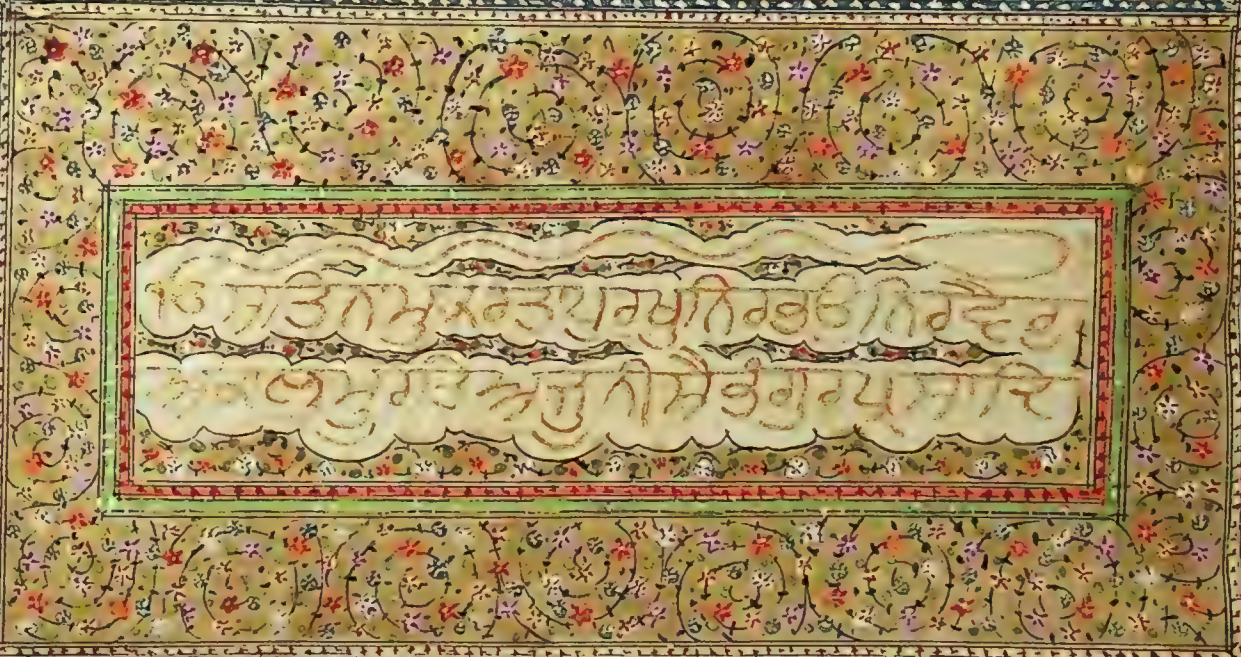 ੴ ਸਤਿ ਨਾਮੁ ਕਰਤਾ ਪੁਰਖੁ ਨਿਰਭਉ ਨਿਰਵੈਰੁ
ਅਕਾਲ ਮੂਰਤਿ ਅਜੂਨੀ ਸੈਭੰ ਗੁਰ ਪ੍ਰਸਾਦਿ